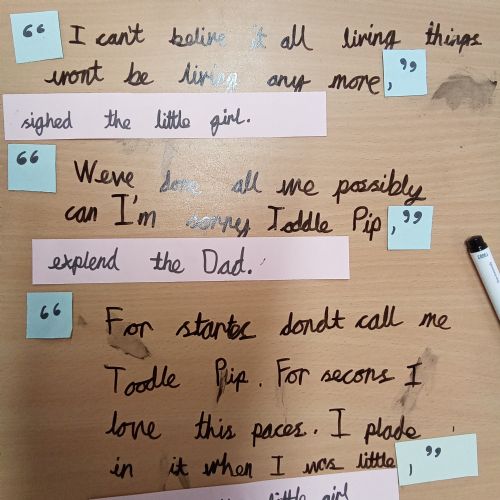 “ I can't belive it all living things
wont be living any more,”
sighed the little girl.
“ Weve done all we possibly
can I'm sorry Toddle Pip,”
explend the Dad.
“ For starts dondt call me
Toodle Plip. For secons I
love this paces. I plade
in it when I was little,”
little girl